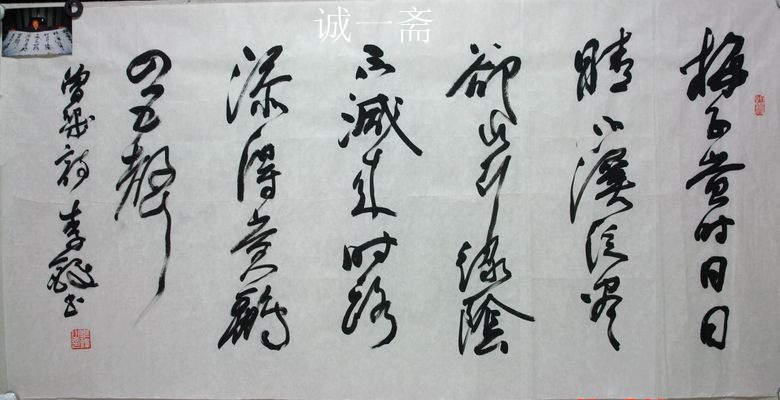 诚一斋
梅子黄时日日
晴小溪泛尽
卻山行绿陰
不减来时路
添得黄鹂
四五聲
曾几诗 李书